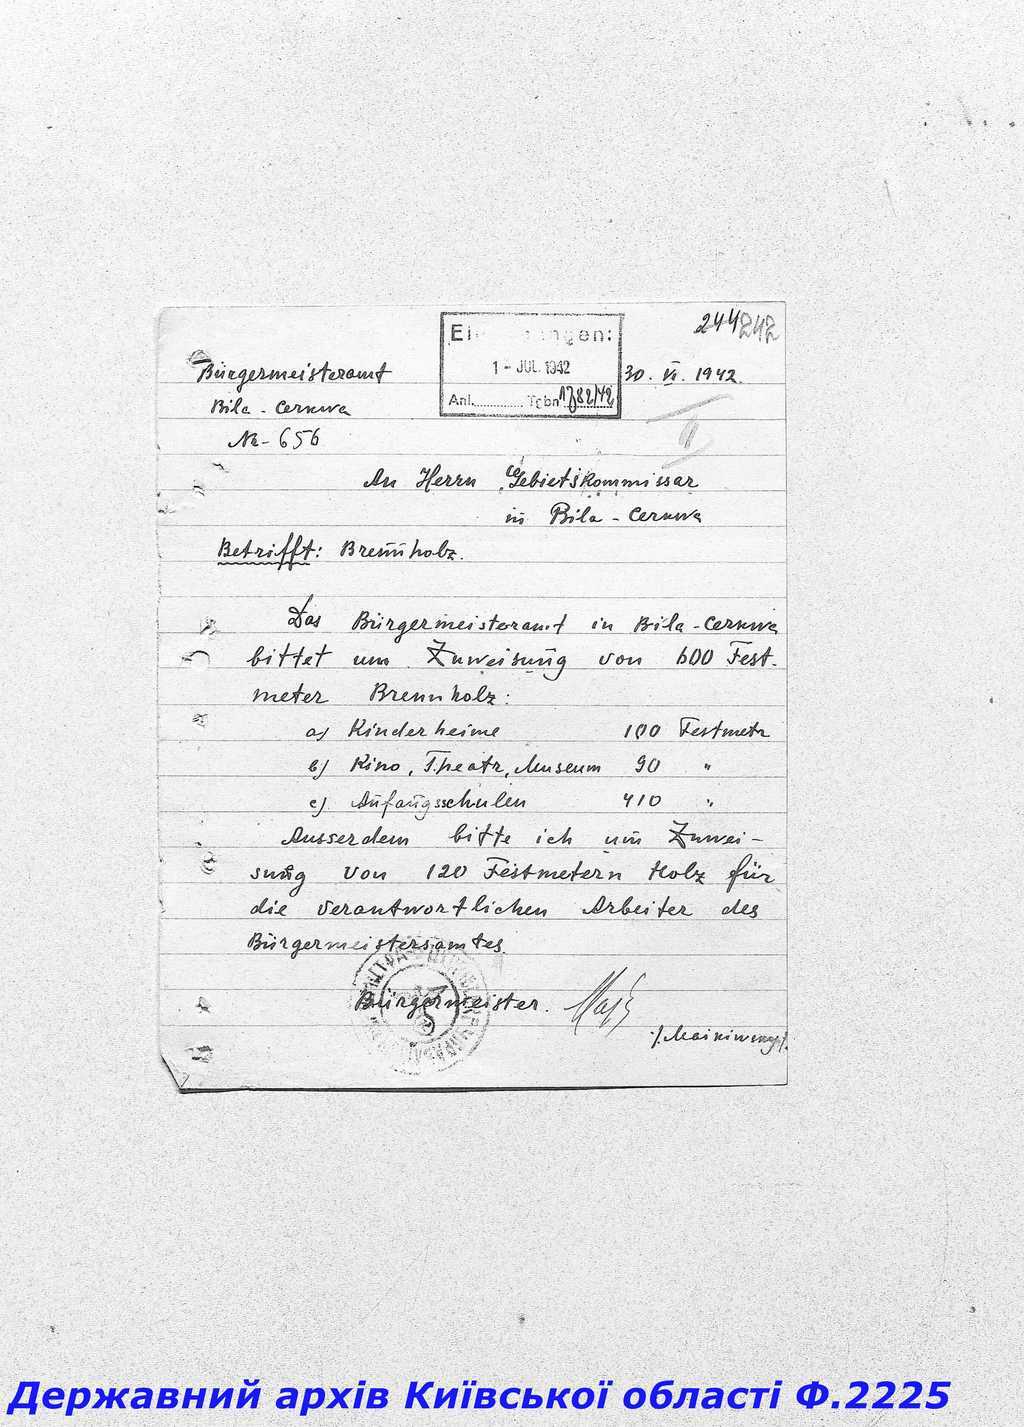 244 242
Eingegangen:
1 - JUL. 1942
Anl. Tgbn 1782/42
Bürgermeisteramt
30. VI. 1942.
Bila - Cerkwa
No - 656
II
An Herrn Gebietskommissar
in Bila - Cerkwa
Betrifft: Brennholz.
Das Bürgermeisteramt in Bila - Cerkwa
bittet um Zuweisung von 600 Fest-
meter Brennholz:
a) Kinderheime 100 Festmetr
b) Kino, Theatr, Museum 90 "
c) Anfangsschulen 410 "
Ausserdem bitte ich um Zuwei-
sung von 120 Festmetern Holz für
die verantwortlichen Arbeiter des
Bürgermeistersamtes.
Bürgermeister.
Державний архів Київської області Ф.2225